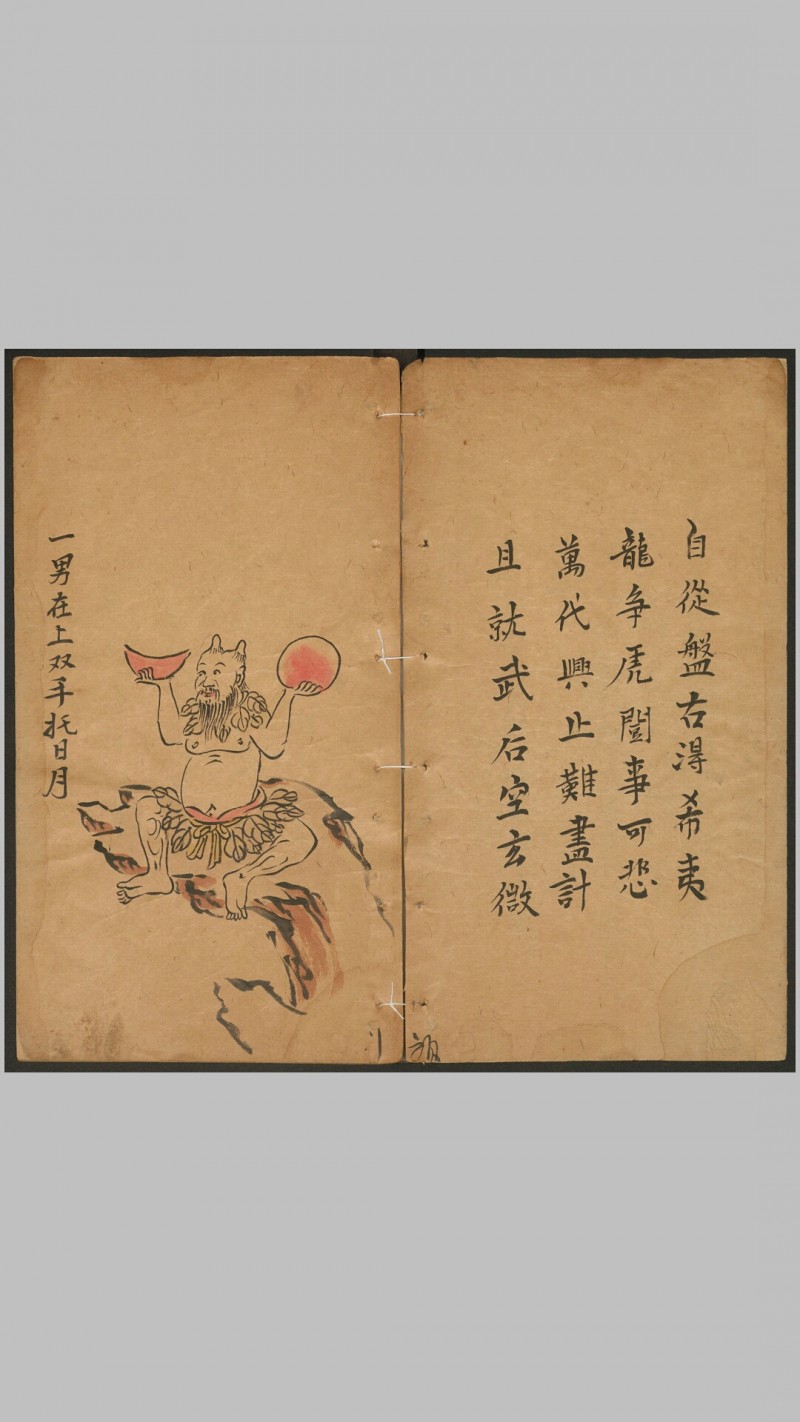 自從盤古淂希夷
龍争虎鬪事可悲
萬代興止難盡計
且就武后空玄微
一男在上双手托日月